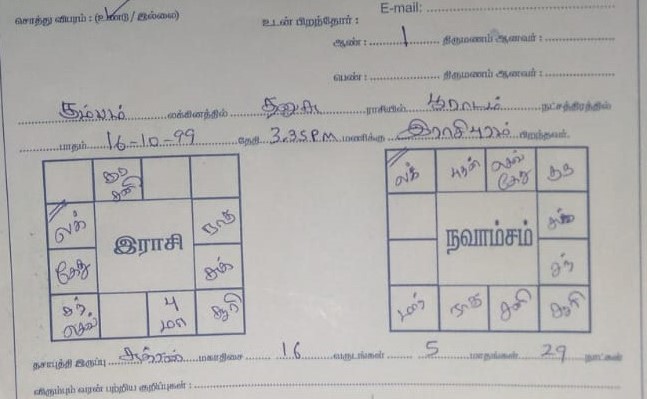 சொத்து விபரம் : (உண்டு / இல்லை)
உடன் பிறந்தோர் :
E-mail:
ஆண் : 1 திருமணம் ஆனவர் :
பெண் : திருமணம் ஆனவர் :
கும்பம் லக்கினத்தில் தனுசு ராசியில் பூராடம் நட்சத்திரத்தில்
பாதம் 16-10-99 தேதி 3.35 P.M மணிக்கு இராசிபுரம் பிறந்தவர்.
குரு சனி
லக் ராகு
இராசி
கேது சுக்
சந் செவ் பு மா சூரி
லக் புதன் செவ் கேது குரு
சுக்
நவாம்சம்
சந்
மா ராகு சனி சூரி
தசாபுத்தி இருப்பு சுக்ரன் மகாதிசை 16 வருடங்கள் 5 மாதங்கள் 29 நாட்கள்
விரும்பும் வரன் பற்றிய குறிப்புகள் :